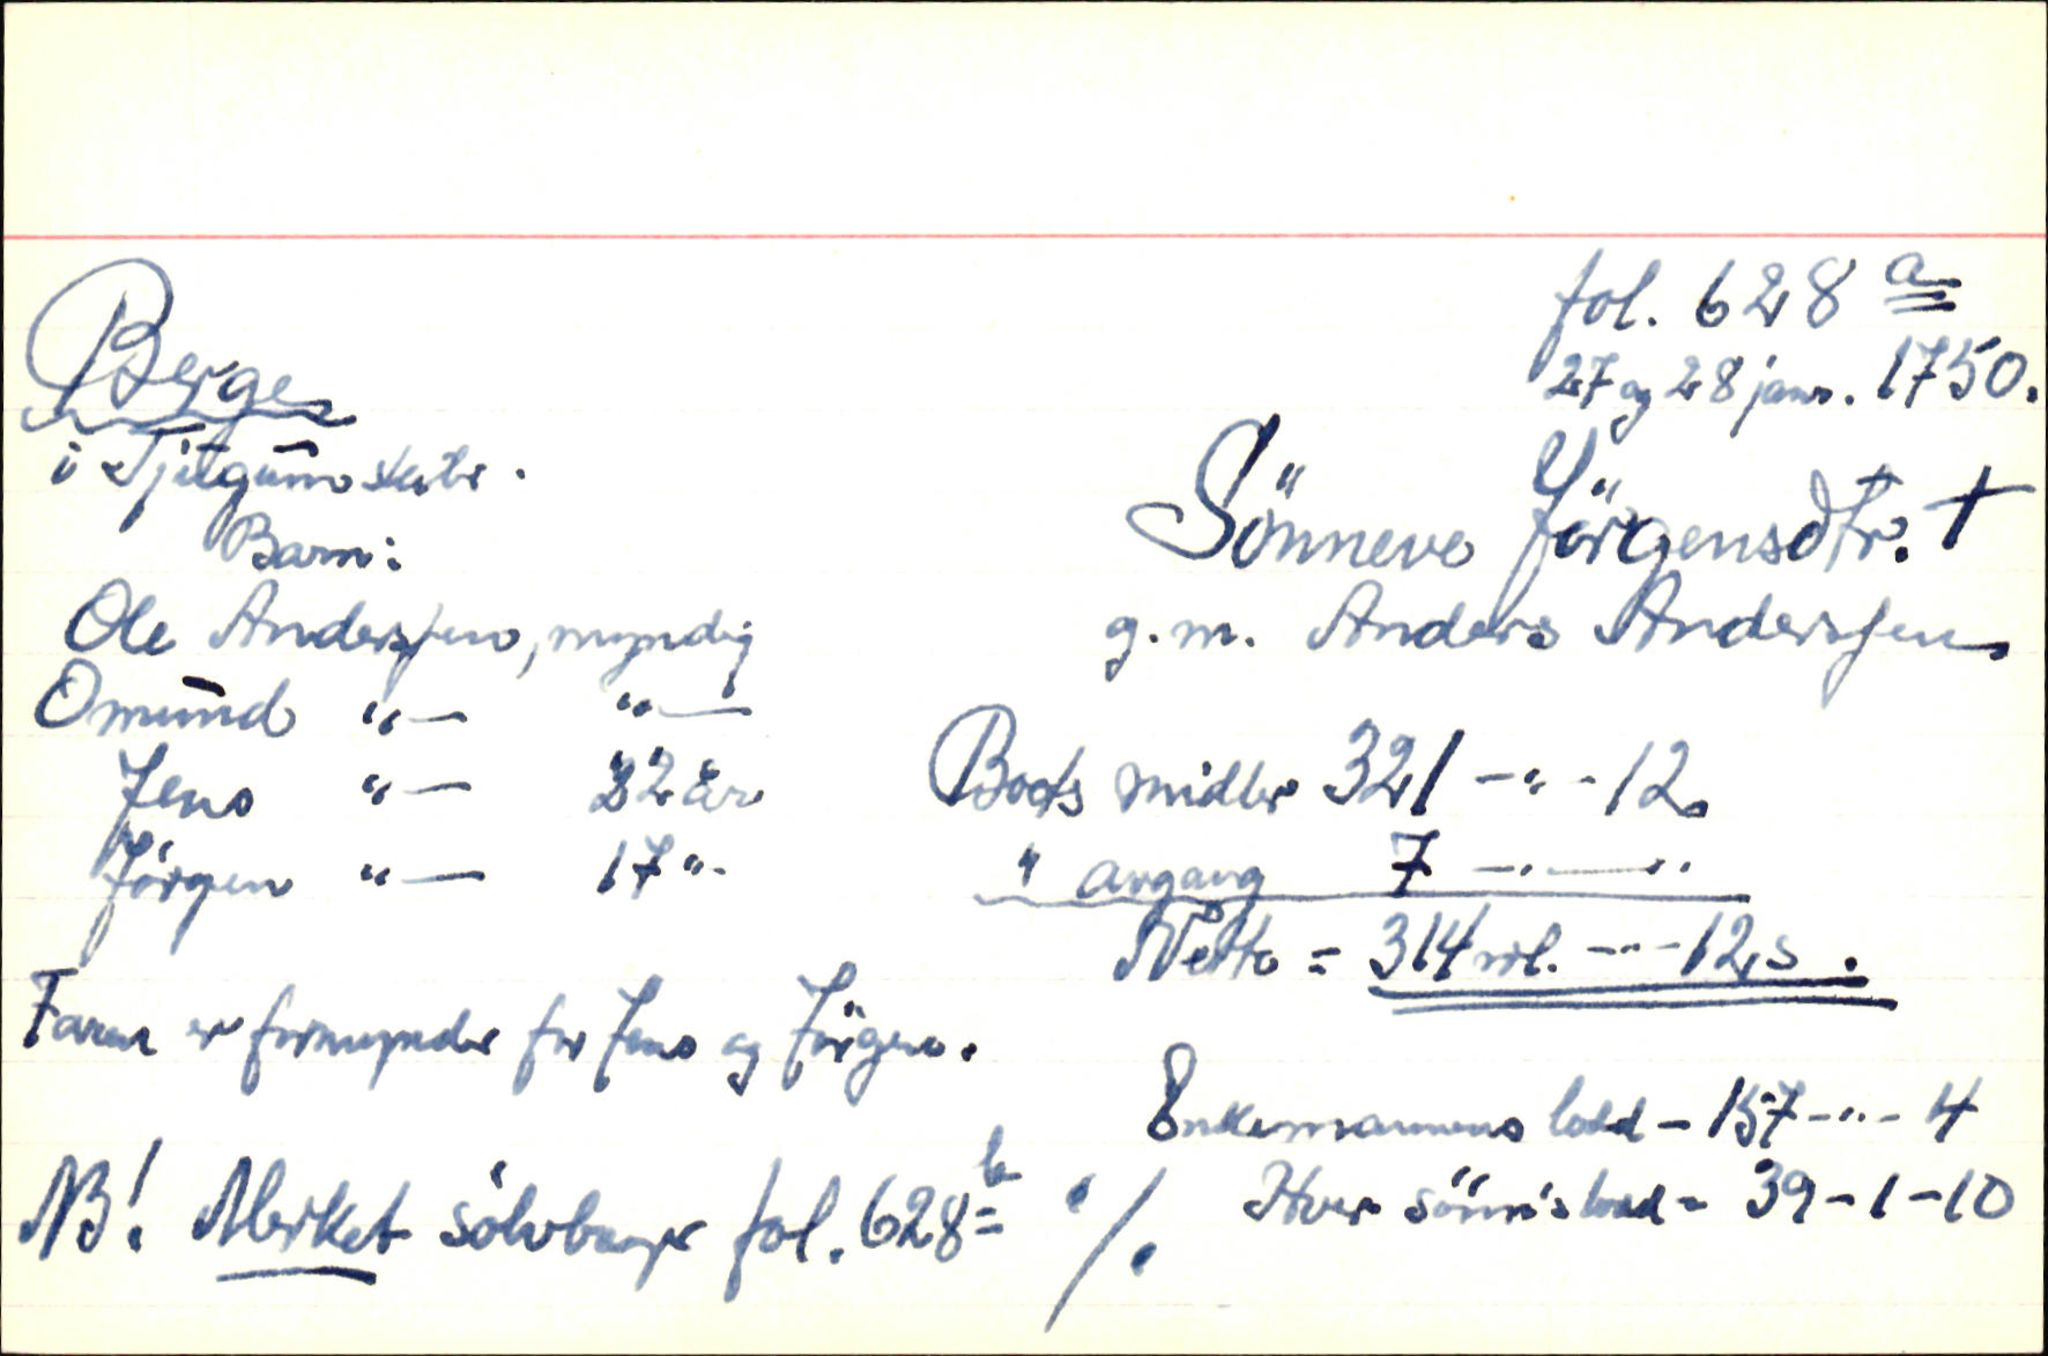 fol. 628 a
27 og 28 janr. 1750.
Berge
i Tjugum skibr.
Sönneve Jörgensdtr. †
g.m. Anders Anderssen
Barn:
Ole Anderssen, myndig
Omund "— "—
Jens "— 22 år
Jörgen "— 17 "
Boets midler 321 - " - 12
" avgang 7 - " — "
Netto = 314 rdl. - " - 12 s.
Faren er formynder for Jens og Jörgen.
Enkemannens lodd - 157 - " - 4
Hver sönn's lodd = 39 - 1 - 10
NB! Merket sölvbeger fol. 628 b ./.